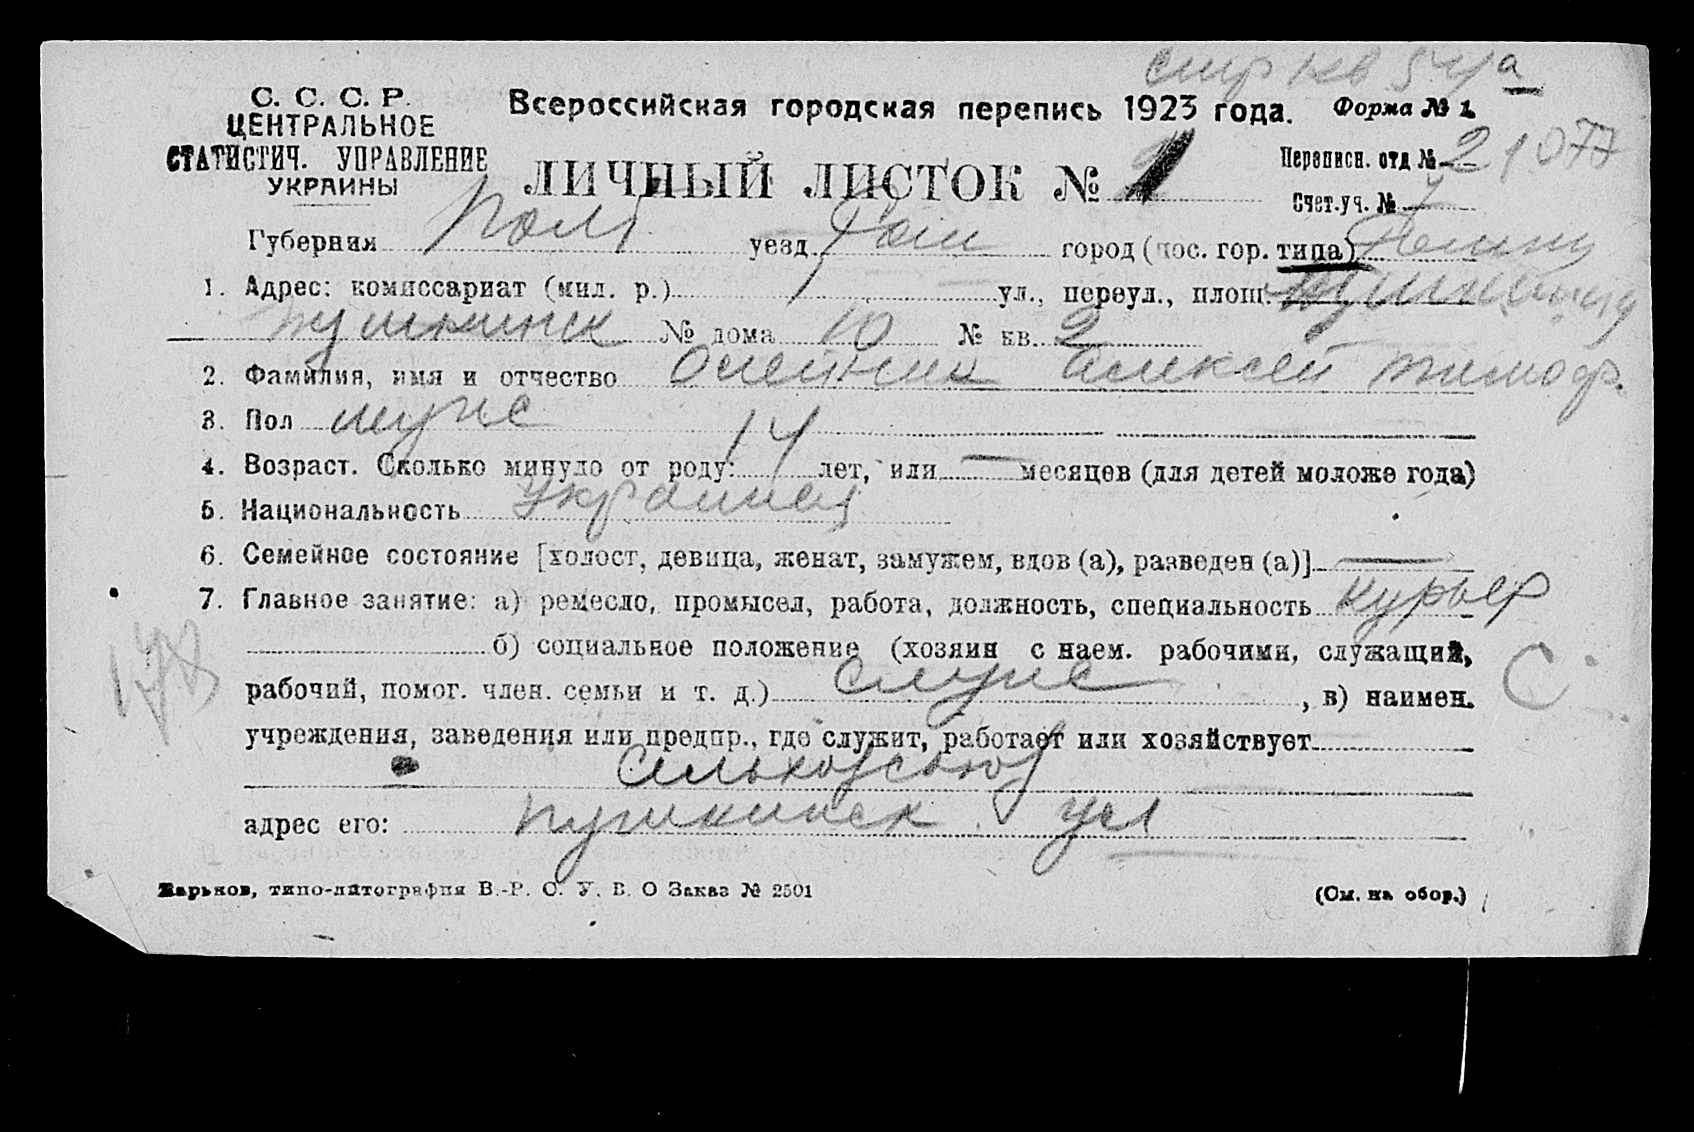 С. С. С. Р.
ЦЕНТРАЛЬНОЕ
СТАТИСТИЧ. УПРАВЛЕНИЕ
УКРАИНЫ
Всероссийская городская перепись 1923 года.
Форма № 1.
ЛИЧНЫЙ ЛИСТОК № 1
Переписн. отд № 2 1077
Счет.уч. №
Губерния Полт уезд город (пос. гор. типа)
1. Адрес: комиссариат (мил. р.) ул., переул., площ.
Пушкинск № дома 10 № кв. 2
2. Фамилия, имя и отчество Олейник Алексей Тимоф.
3. Пол муж
4. Возраст. Сколько минуло от роду: 14 лет, или — месяцев (для детей моложе года)
5. Национальность Украинец
6. Семейное состояние [холост, девица, женат, замужем, вдов (а), разведен (а)] —
7. Главное занятие: а) ремесло, промысел, работа, должность, специальность курьер
б) социальное положение (хозяин с наем. рабочими, служащий,
рабочий, помог. член. семьи и т. д.) служ , в) наимен.
учреждения, заведения или предпр., где служит, работает или хозяйствует
Сельхозсоюз
адрес его: Пушкинск ул
178
С
Харьков, типо-литография В.-Р. С. У. В. О Заказ № 2501
(См. на обор.)